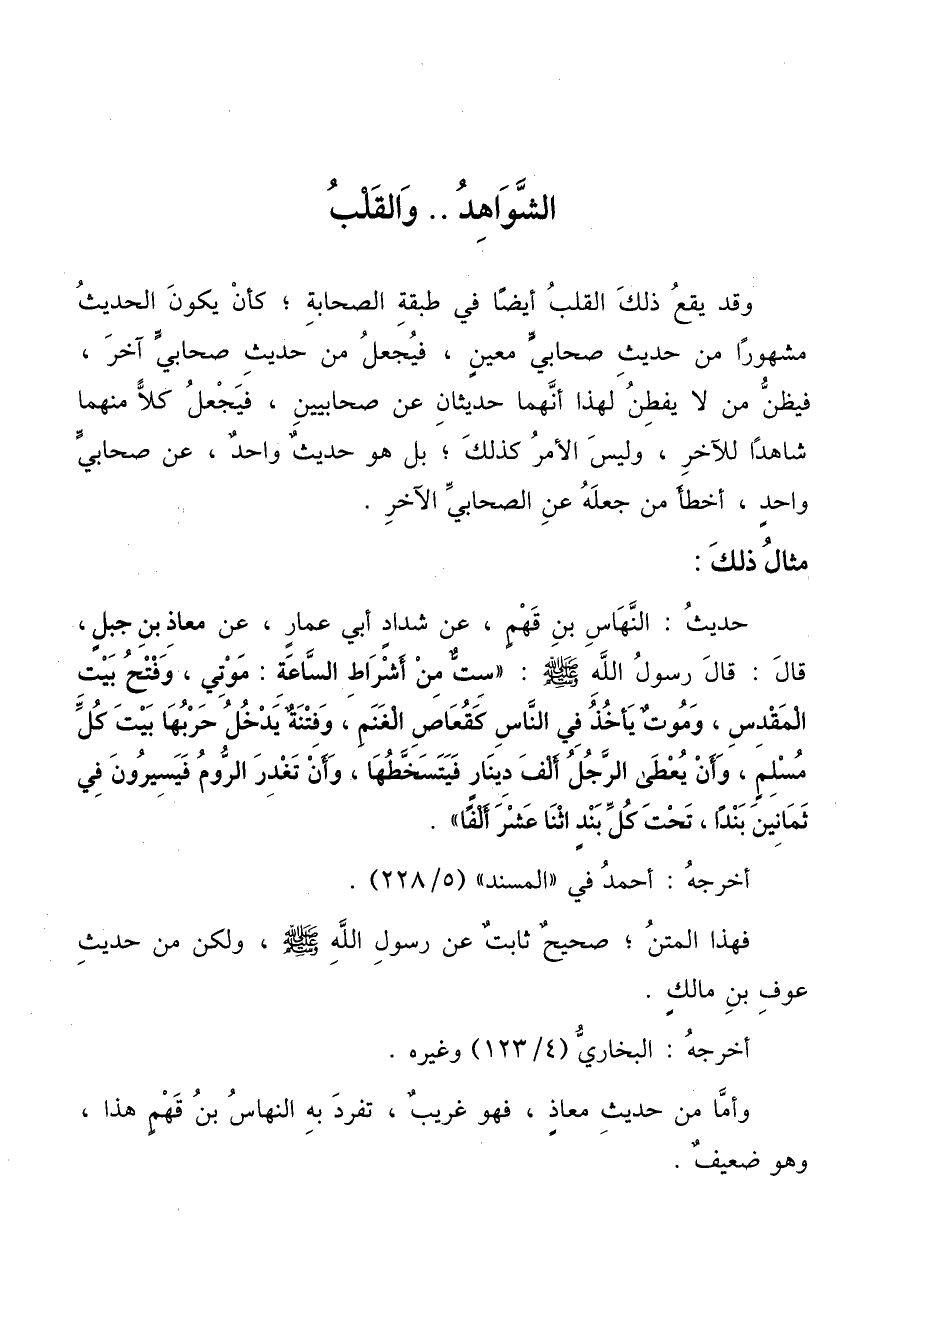 الشَّوَاهِدُ .. وَالقَلْبُ
وقد يقعُ ذلكَ القلبُ أيضًا في طبقةِ الصحابةِ ؛ كأنْ يكونَ الحديثُ
مشهورًا من حديثِ صحابيٍّ معينٍ ، فيُجعلُ من حديثِ صحابيٍّ آخرَ ،
فيظنُّ من لا يفطنُ لهذا أنَّهما حديثانِ عن صحابيينِ ، فيَجْعلُ كلاًّ منهما
شاهدًا للآخرِ ، وليسَ الأمرُ كذلكَ ؛ بل هو حديثٌ واحدٌ ، عن صحابيٍّ
واحدٍ ، أخطأَ من جعلَهُ عنِ الصحابيِّ الآخرِ .
مثالُ ذلكَ :
حديثُ : النَّهَاسِ بنِ قَهْمٍ ، عن شدادٍ أبي عمارٍ ، عن معاذِ بنِ جبلٍ ،
قالَ : قالَ رسولُ اللَّهِ ﷺ : «ستٌّ مِنْ أَشْرَاطِ السَّاعَةِ : مَوْتِي ، وَفَتْحُ بَيْتِ
الْمَقْدِسِ ، وَمُوتٌ يَأخُذُ فِي النَّاسِ كَقُعَاصِ الْغَنَمِ ، وَفِتْنَةٌ يَدْخُلُ حَرْبُهَا بَيْتَ كُلِّ
مُسْلِمٍ ، وَأَنْ يُعْطَى الرَّجُلُ أَلْفَ دِينَارٍ فَيَتَسَخَّطُهَا ، وَأَنْ تَغْدِرَ الرُّومُ فَيَسِيرُونَ فِي
ثَمَانِينَ بَنْدًا ، تَحْتَ كُلِّ بَنْدٍ اثْنَا عَشْرَ أَلْفًا» .
أخرجهُ : أحمدُ في «المسند» (٥/ ٢٢٨) .
فهذا المتنُ ؛ صحيحٌ ثابتٌ عن رسولِ اللَّهِ ﷺ ، ولكن من حديثِ
عوفِ بنِ مالكٍ .
أخرجهُ : البخاريُّ (٤/ ١٢٣) وغيره .
وأمَّا من حديثِ معاذٍ ، فهو غريبٌ ، تفردَ بهِ النهاسُ بنُ قَهْمٍ هذا ،
وهو ضعيفٌ .